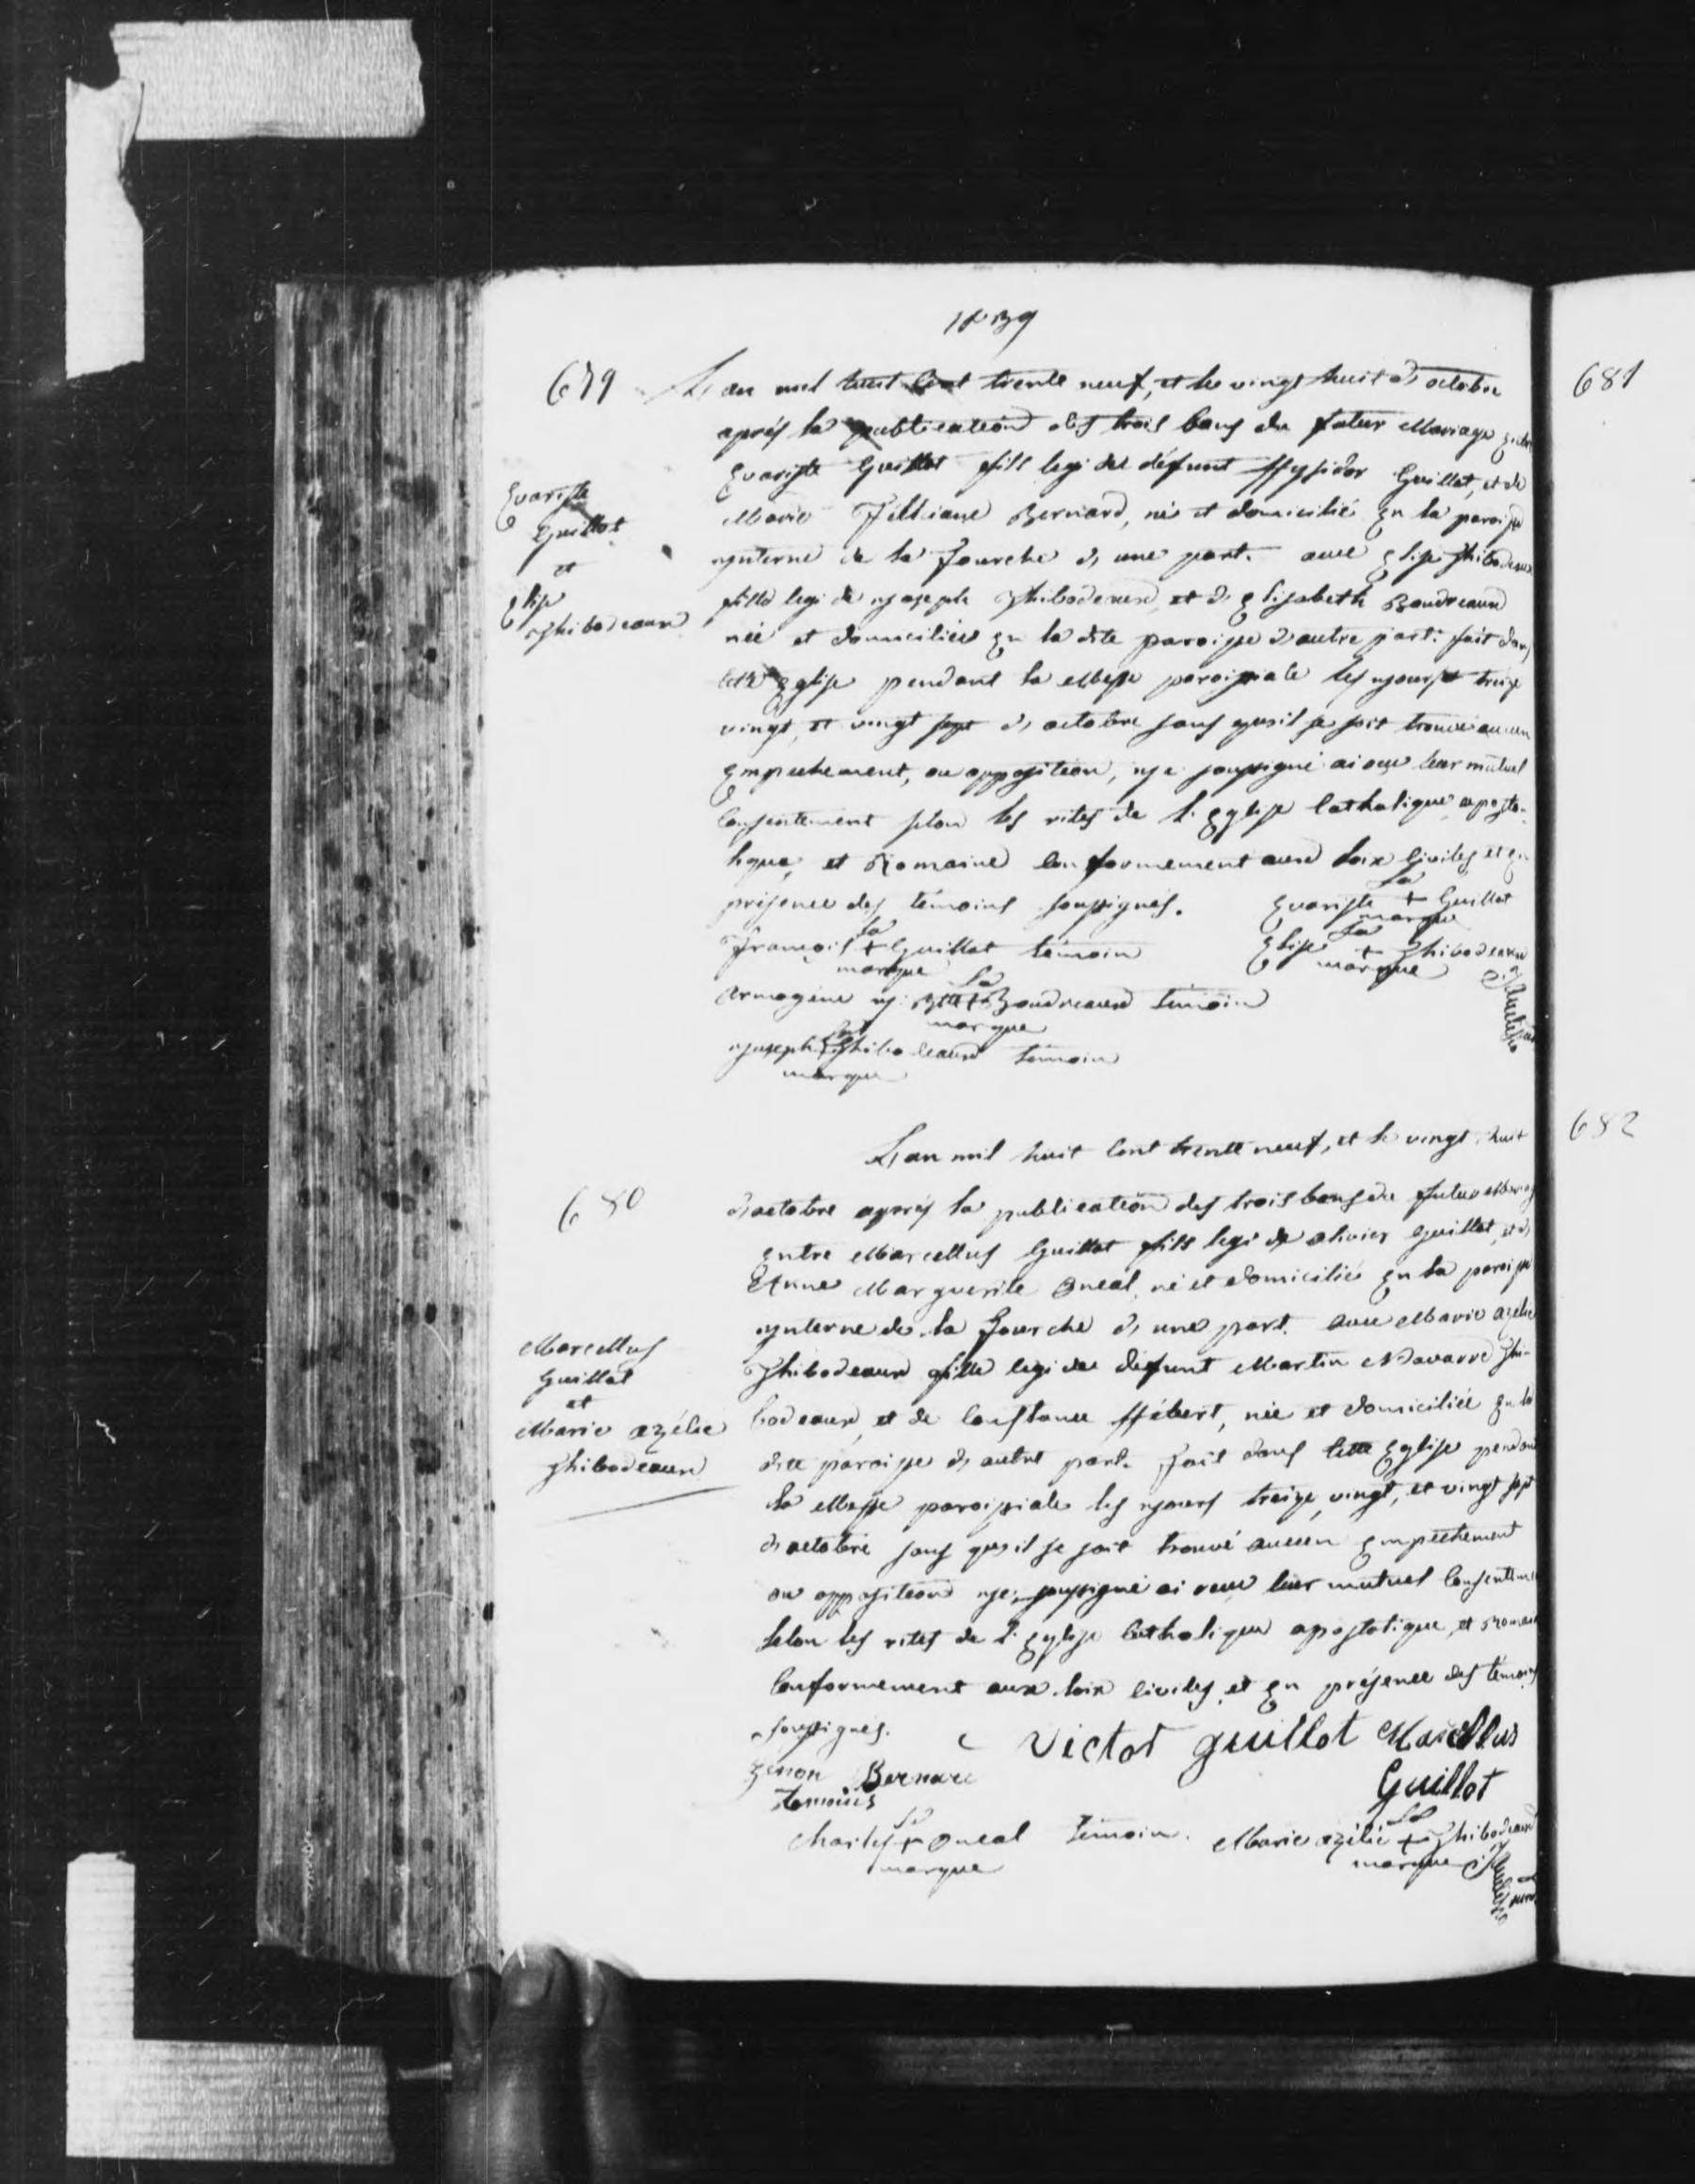 1839
679
L'an mil huit Cent trente neuf, et le vingt huit d'octobre
après la publication des trois bans du futur Mariage entre
Evariste Guillot fils legi de défunt Hysidor Guillot, et de
Marie Bernard, né et domicilié En la paroisse
interne de la Fourche d'une part. avec Elise Thibodeaux
fille legi de joseph Thibodeaux, et d'Elisabeth Boudreaux
née et domiciliée En la dite paroisse d'autre part: fait dans
cette Eglise pendant la Messe paroissiale les jours treize
vingt, et vingt sept d'octobre sans qu'il se soit trouvé aucun
Empechement, ou opposition, je soussigné ai reçu leur mutuel
Consentement selon les rites de l'Eglise Catholique aposto-
lique, et Romaine Conformement aux loix Civiles et En
présence des témoins soussignés.
Evariste Guillot
et
Elise Thibodeaux
Evariste + Guillot
Sa marque
François + Guillot témoin
Sa marque
Elise + Thibodeaux
Sa marque
Armogène j: Bte + Boudreaux témoin
Sa marque
joseph + Thibodeaux témoin
Sa marque
680
L'an mil huit Cent trente neuf, et le vingt huit
d'octobre après la publication des trois bans du futur Mariage
Entre Marcellus Guillot fils legi de olivier Guillot, et d'
Anne Marguerite Oneal, né et domicilié En la paroisse
interne de la Fourche d'une part. avec Marie azélie
Thibodeaux fille legi de défunt Martin Navarre Thi-
bodeaux, et de Constance Hébert, née et domiciliée En la
dite paroisse d'autre part. fait dans cette Eglise pendant
la Messe paroissiale les jours treize, vingt, et vingt sept
d'octobre sans qu'il se soit trouvé aucun Empechement
ou opposition je, soussigné ai reçu leur mutuel Consentement
selon les rites de l'Eglise Catholique apostolique, et Romaine
Conformement aux loix Civiles, et En présence des témoins
soussignés.
Marcellus
Guillot
et
Marie azélie
Thibodeaux
Victor guillot Marcellus
Guillot
Zenon Bernard
Temoins
Charles + Oneal témoin.
Sa marque
Marie azélie + Thibodeaux
Sa marque
681
682